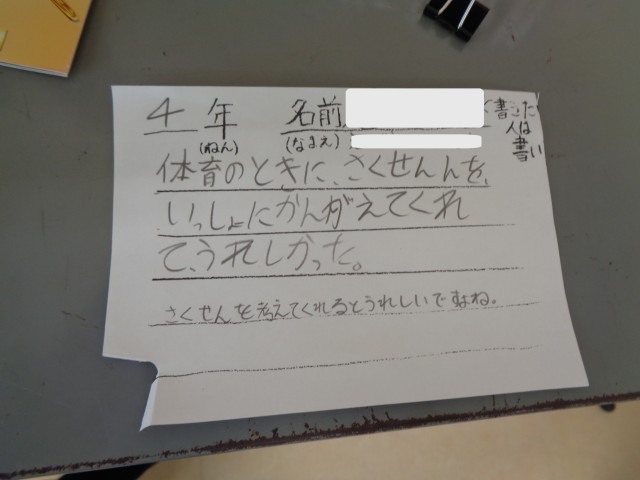 4年 名前
(ねん) (なまえ)
書きた
人は
書い
体育のときに、さくせんを、
いっしょにかんがえてくれ
て、うれしかった。
さくせんを考えてくれるとうれしいですよね。